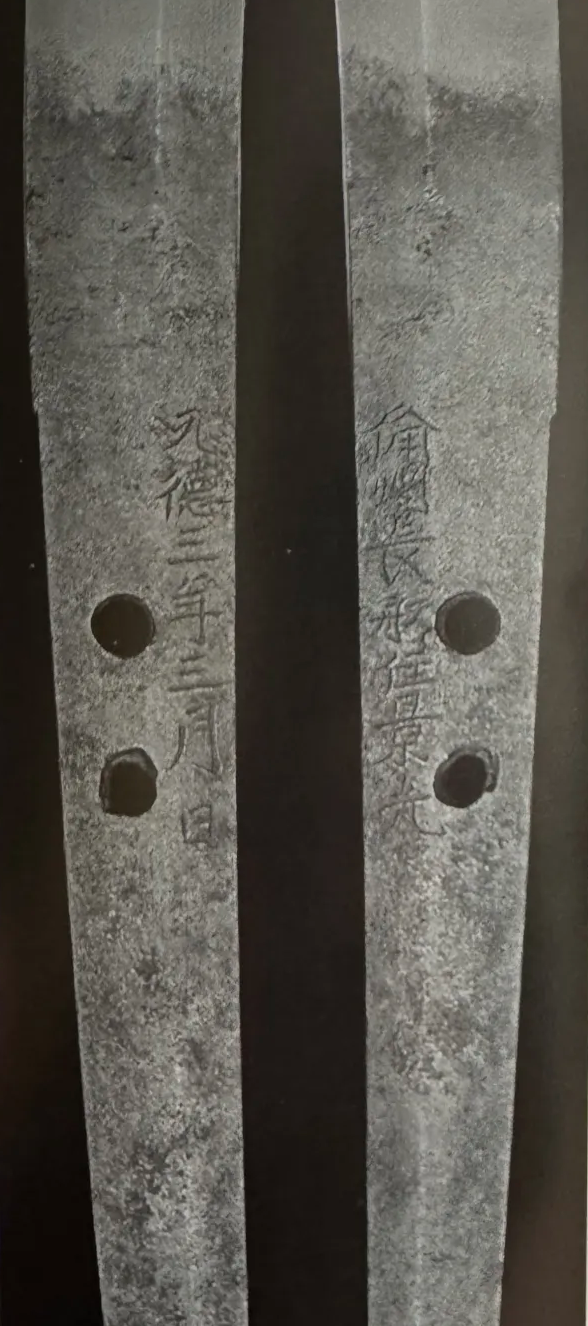 備州長船住景光
元徳三年三月日